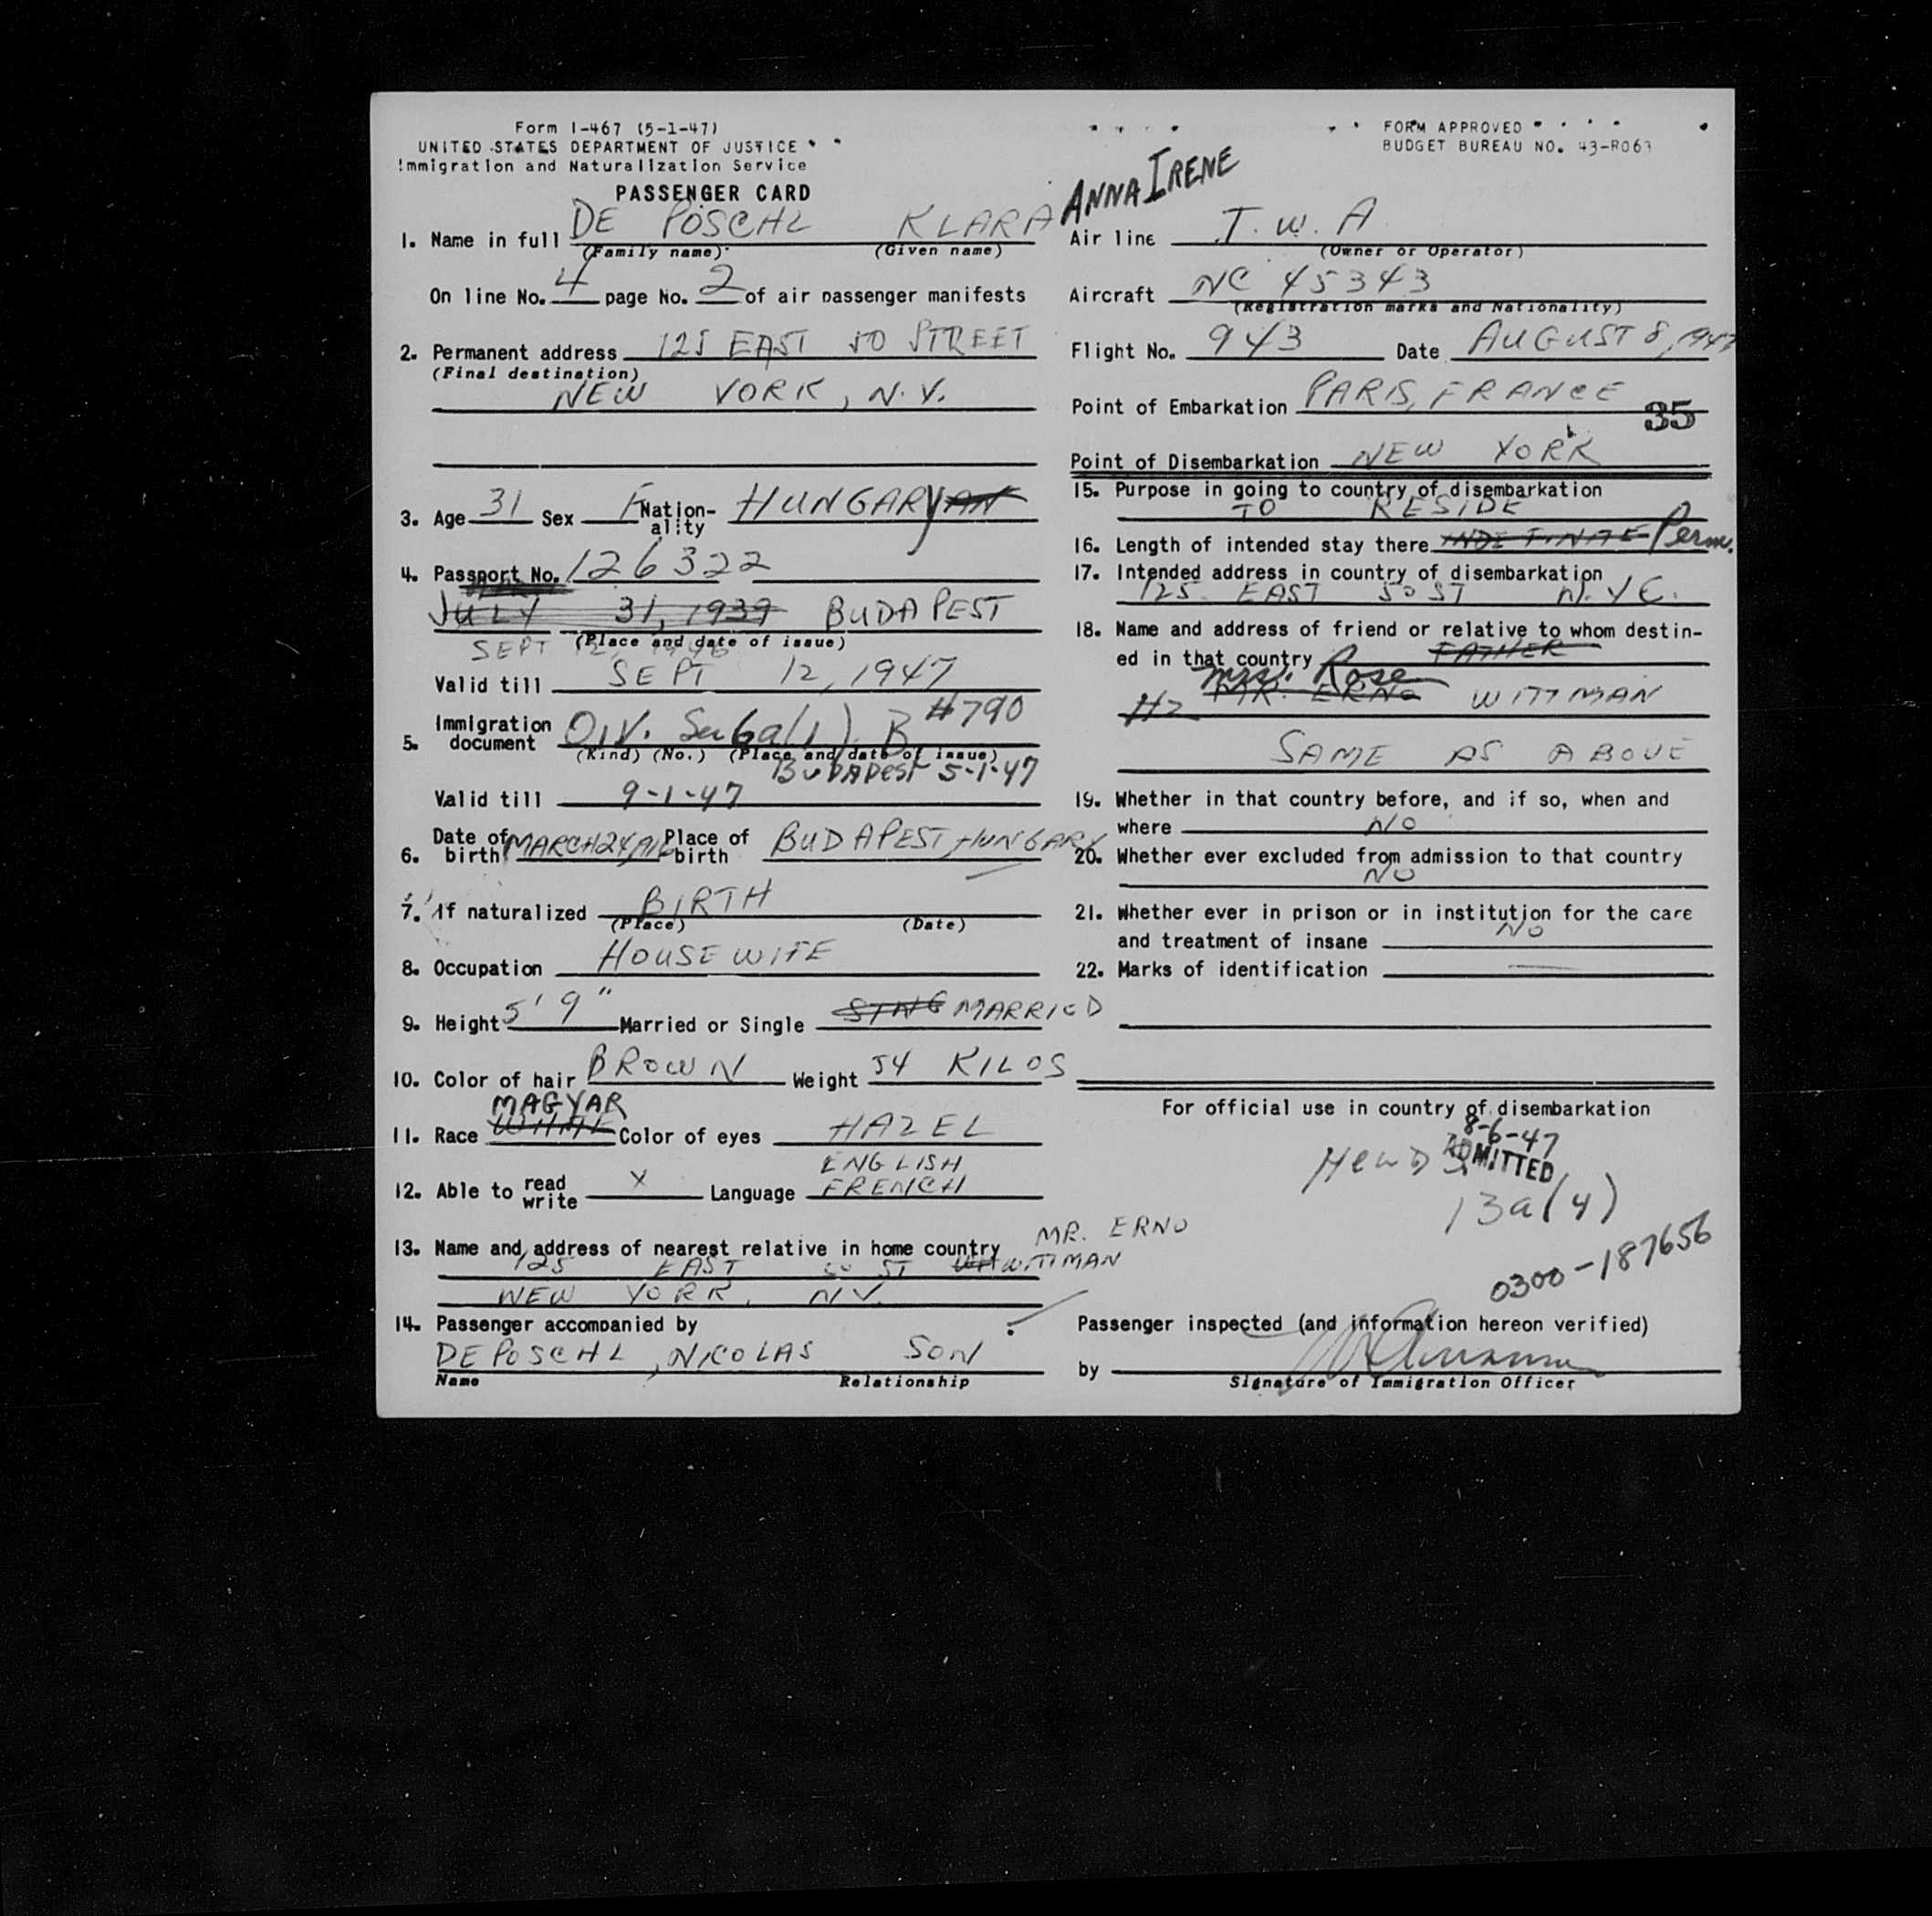 Form I-467 (5-1-47)
UNITED STATES DEPARTMENT OF JUSTICE
Immigration and Naturalization Service
PASSENGER CARD
FORM APPROVED
BUDGET BUREAU NO. 43-R063
1. Name in full DE POSCHL KLARA ANNA IRENE
(Family name) (Given name)
On line No. 4 page No. 2 of air passenger manifests
2. Permanent address 125 EAST 50 STREET
(Final destination)
NEW YORK, N.Y.
3. Age 31 Sex F Nation-ality HUNGARY AN
4. Passport No. 126322
JULY 31, 1939 BUDAPEST
(Place and date of issue)
SEPT 12, 1946
Valid till SEPT 12, 1947
5. Immigration document QIV. Sec 6a(1) B #790
(Kind) (No.) (Place and date of issue)
BUDAPEST 5-1-47
Valid till 9-1-47
6. Date of birth MARCH 24, 1916 Place of birth BUDAPEST, HUNGARY
7. If naturalized BIRTH
(Place) (Date)
8. Occupation HOUSEWIFE
9. Height 5' 9" Married or Single SING MARRIED
10. Color of hair BROWN Weight 54 KILOS
MAGYAR
11. Race WHITE Color of eyes HAZEL
ENGLISH
12. Able to read write X Language FRENCH
13. Name and address of nearest relative in home country MR. ERNO
125 EAST 50 ST WITTMAN
NEW YORK, N.Y.
14. Passenger accompanied by
DE POSCHL, NICOLAS SON
Name Relationship
Air line T.W.A
(Owner or Operator)
Aircraft NC 45343
(Registration marks and Nationality)
Flight No. 943 Date AUGUST 8, 1947
Point of Embarkation PARIS, FRANCE
35
Point of Disembarkation NEW YORK
15. Purpose in going to country of disembarkation
TO RESIDE
16. Length of intended stay there INDEFINITE Perm.
17. Intended address in country of disembarkation
125 EAST 50 ST N.Y.C.
18. Name and address of friend or relative to whom destin-
ed in that country FATHER
Mrs. Rose
MR. ERNO WITTMAN
SAME AS ABOVE
19. Whether in that country before, and if so, when and
where NO
20. Whether ever excluded from admission to that country
NO
21. Whether ever in prison or in institution for the care
and treatment of insane NO
22. Marks of identification —
For official use in country of disembarkation
8-6-47
ADMITTED
13a(4)
0300-187656
Passenger inspected (and information hereon verified)
by
Signature of Immigration Officer